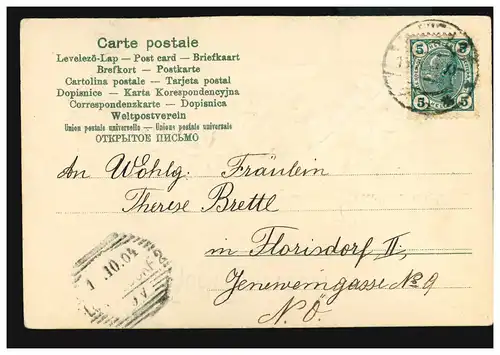 Carte postale
Levelezö-Lap — Post card — Briefkaart
Brefkort — Postkarte
Cartolina postale — Tarjeta postal
Dopisnice — Karta Korespondencyjna
Correspondenzkarte — Dopisnica
Weltpostverein
Union postale universelle — Unione postale universale
ОТКРЫТОЕ ПИСЬМО
5 5
5 5
An Wohlg. Fräulein
Therese Brettl
in Florisdorf II,
Jeneweingasse No 9
N. Ö.
1 .10.04